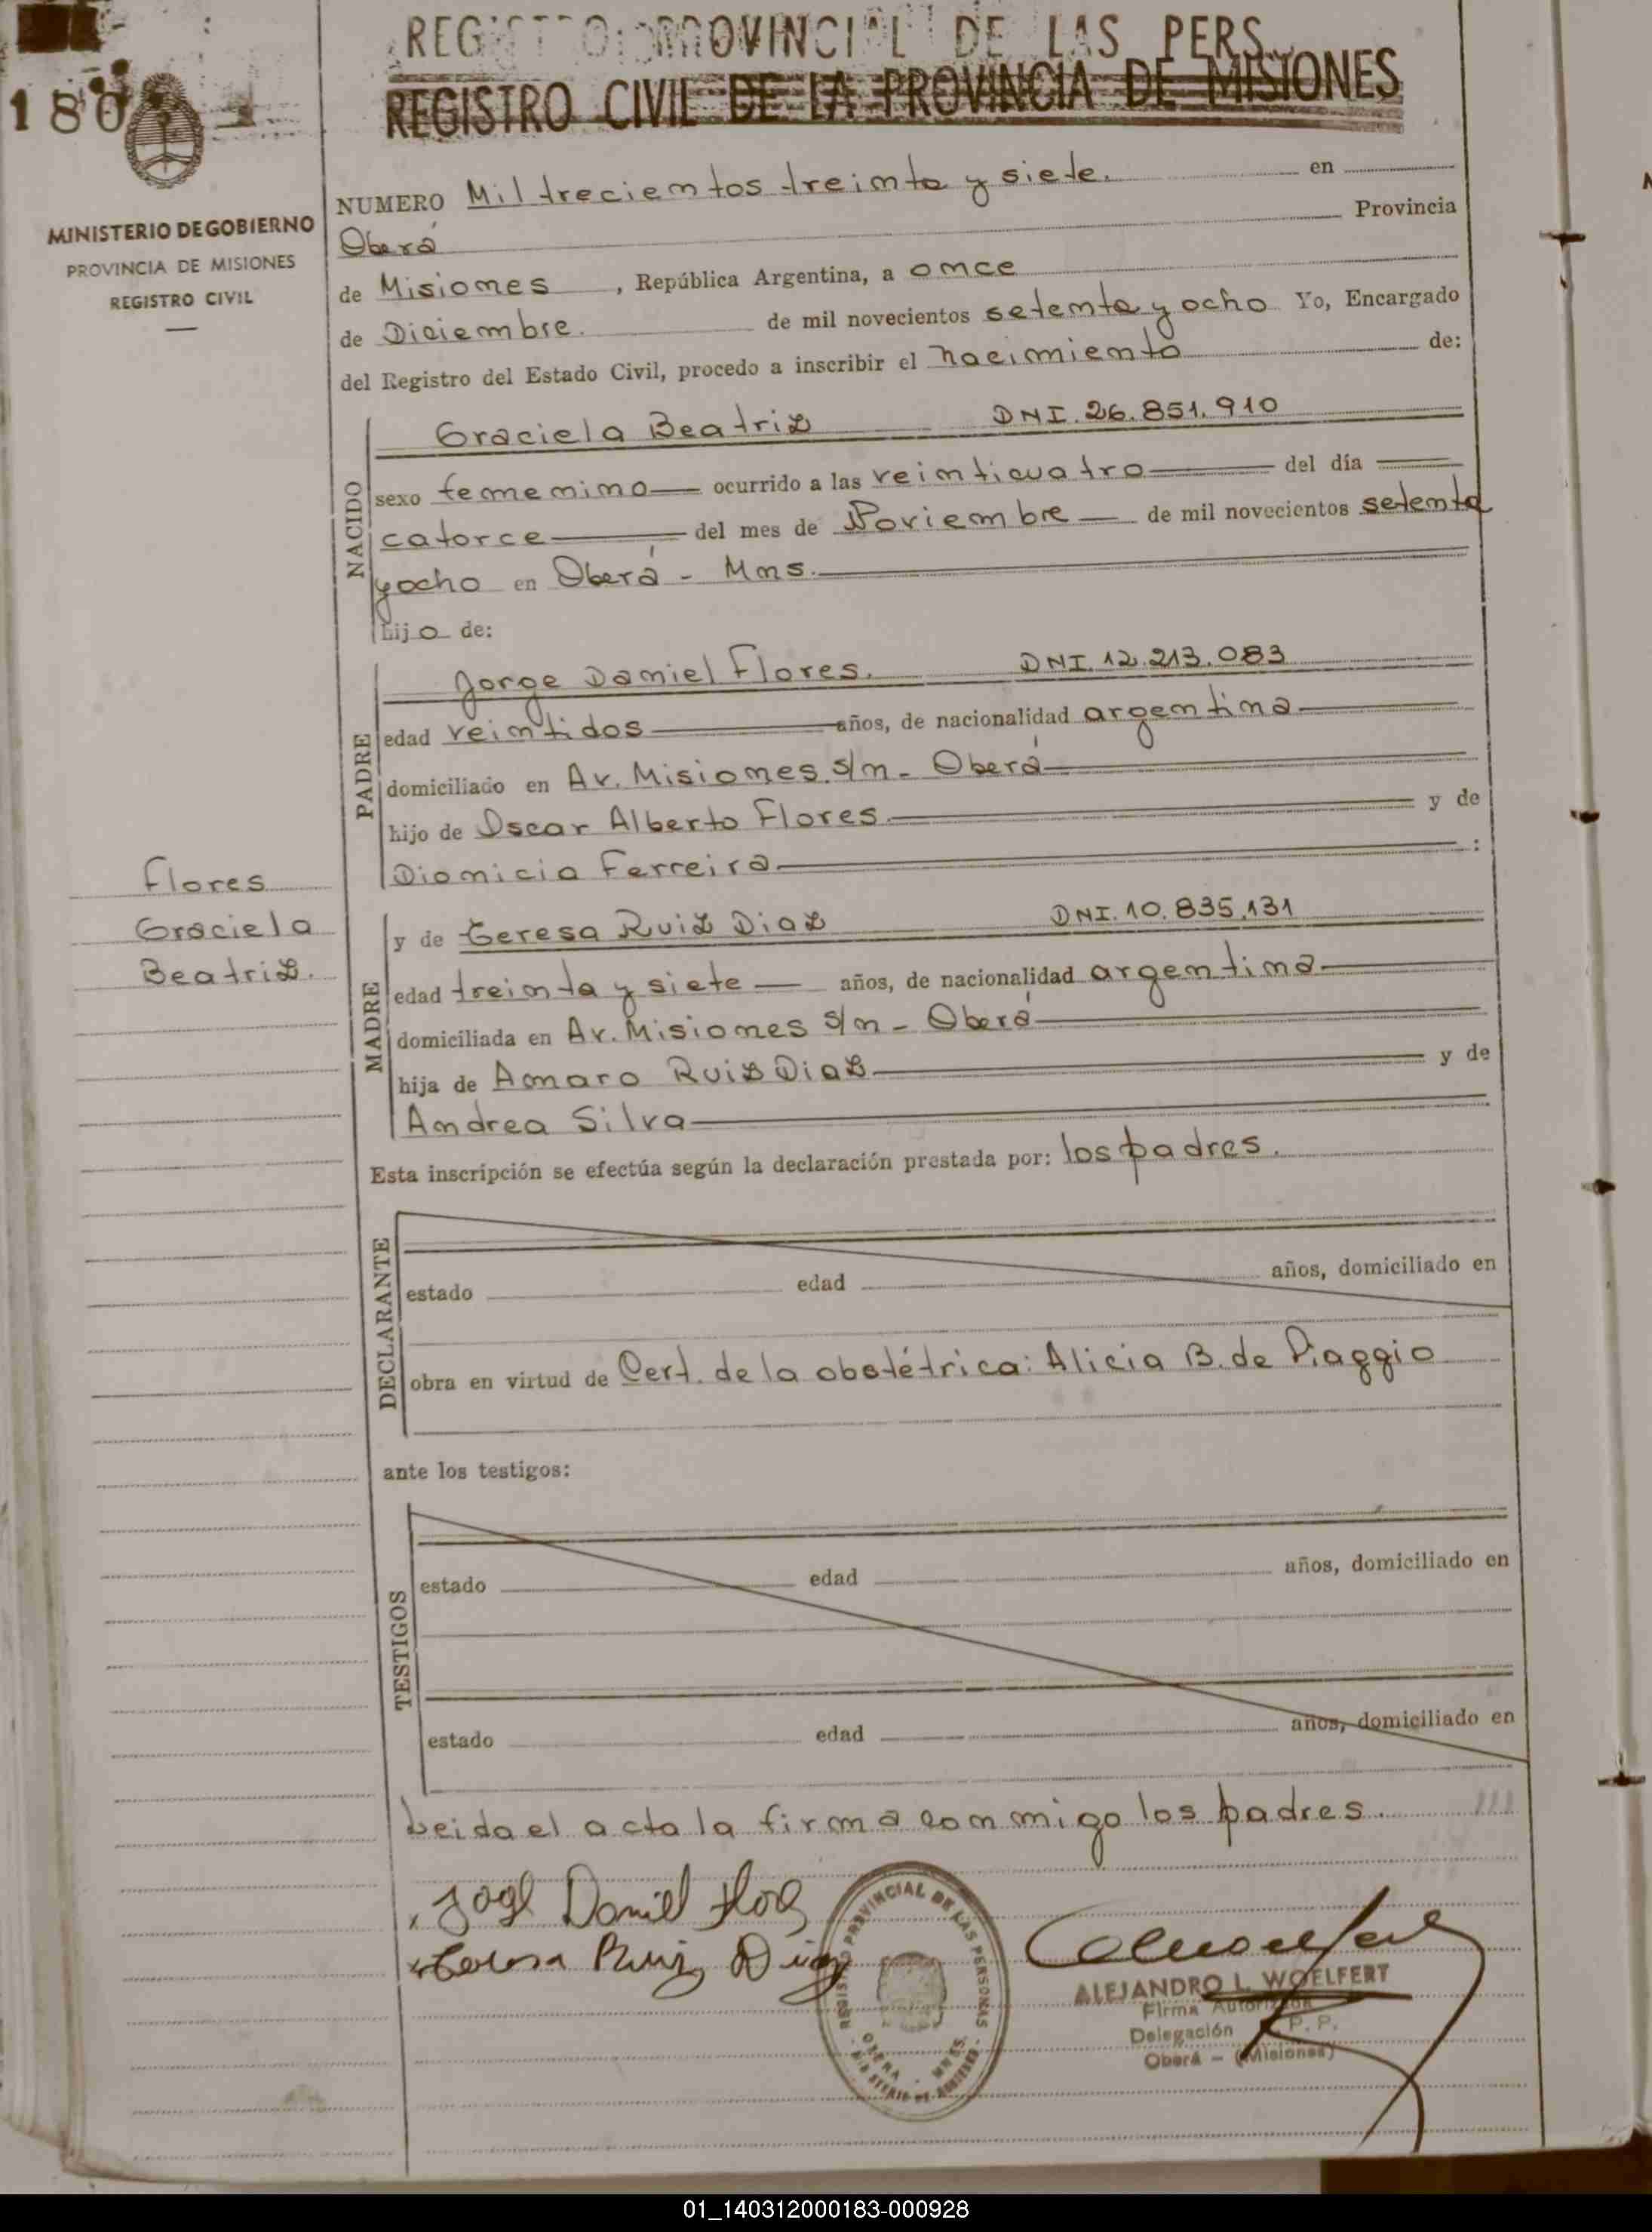 REGISTRO PROVINCIAL DE LAS PERS.
REGISTRO CIVIL DE LA PROVINCIA DE MISIONES
180
MINISTERIO DE GOBIERNO
PROVINCIA DE MISIONES
REGISTRO CIVIL
NUMERO Mil trecientos treinta y siete. en
Oberá Provincia
de Misiones, República Argentina, a once
de Diciembre. de mil novecientos setenta y ocho Yo, Encargado
del Registro del Estado Civil, procedo a inscribir el nacimiento de:
NACIDO
Graciela Beatriz DNI. 26.851.910
sexo femenino ocurrido a las veinticuatro del día
catorce del mes de Noviembre de mil novecientos setenta
y ocho en Oberá - Mns.
hijo de:
PADRE
Jorge Daniel Flores. DNI. 12.213.083
edad veintidos años, de nacionalidad argentina
domiciliado en Av. Misiones s/n - Oberá
hijo de Oscar Alberto Flores y de
Dionicia Ferreira :
Flores
Graciela
Beatriz.
MADRE
y de Teresa Ruiz Diaz DNI. 10.835.131
edad treinta y siete años, de nacionalidad argentina
domiciliada en Av. Misiones s/n - Oberá
hija de Amaro Ruiz Diaz y de
Andrea Silva
Esta inscripción se efectúa según la declaración prestada por: los padres.
DECLARANTE
estado edad años, domiciliado en
obra en virtud de Cert. de la obstétrica: Alicia B. de Piaggio
ante los testigos:
TESTIGOS
estado edad años, domiciliado en
estado edad años, domiciliado en
Leida el acta la firma conmigo los padres.
Daniel
Ruiz Diaz
REGISTRO PROVINCIAL DE LAS PERSONAS
OBERA - MNES.
MINISTERIO DE GOBIERNO
ALEJANDRO L. WOELFERT
Firma Autorizada
Delegación R. P. P.
Oberá - (Misiones)
01_140312000183-000928